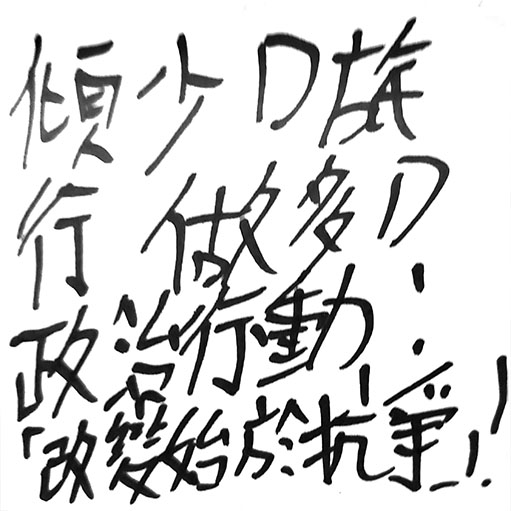 傾少D旅
行 做多D
政治行動!
「改變始於抗爭」!